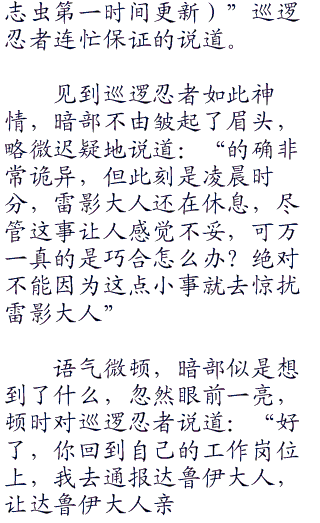 志虫第一时间更新）”巡逻
忍者连忙保证的说道。
见到巡逻忍者如此神
情，暗部不由皱起了眉头，
略微迟疑地说道：“的确非
常诡异，但此刻是凌晨时
分，雷影大人还在休息，尽
管这事让人感觉不妥，可万
一真的是巧合怎么办？绝对
不能因为这点小事就去惊扰
雷影大人”
语气微顿，暗部似是想
到了什么，忽然眼前一亮，
顿时对巡逻忍者说道：“好
了，你回到自己的工作岗位
上，我去通报达鲁伊大人，
让达鲁伊大人亲